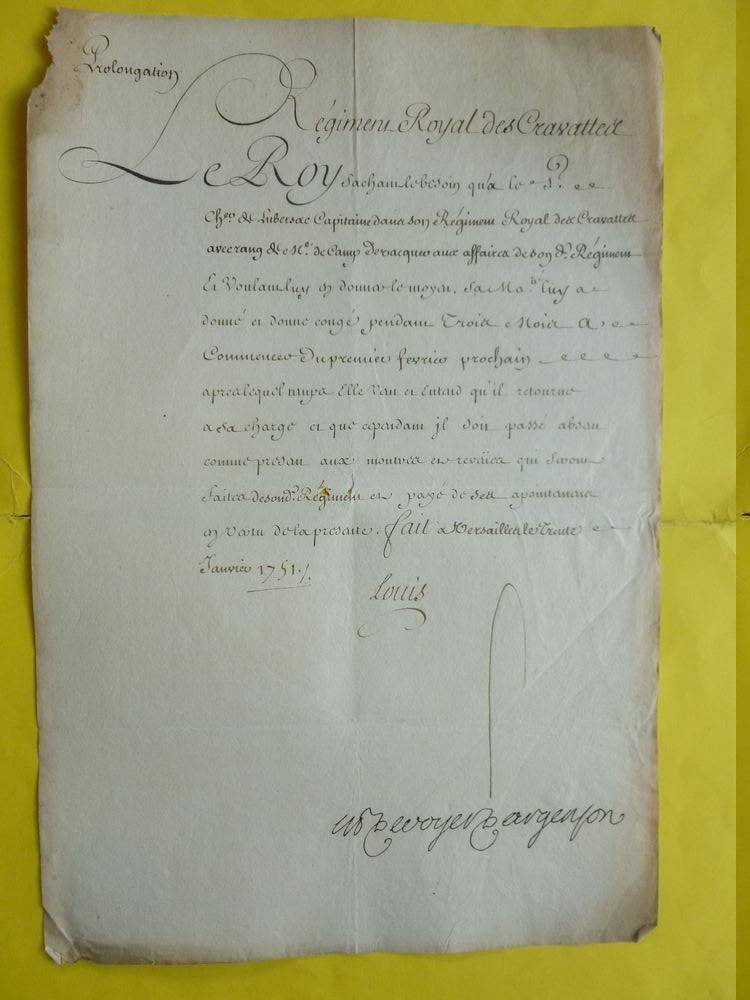 Prolongation
Régiment Royal des Cravattes
Le Roy sachant le besoin qu'a le S.r
Ch.er de Lubersac Capitaine dans son Régiment Royal des Cravattes
avec rang de M.e de Camp de vacquer aux affaires de son d. Régiment
Et Voulant luy en donner le moyen, Sa Ma.té luy a
donné et donne congé pendant Trois Mois A
Commencer du premier fevrier prochain
apres lequel temps Elle Veut et Entend qu'il retourne
a Sa charge et que cependant jl soit passé absent
comme present aux montres et reveües qui seront
faites de son d. Régiment et payé de ses apointemens
en vertu de la presente. fait a Versailles le Trente
Janvier 1751./.
Louis
M P De voyer D argenson